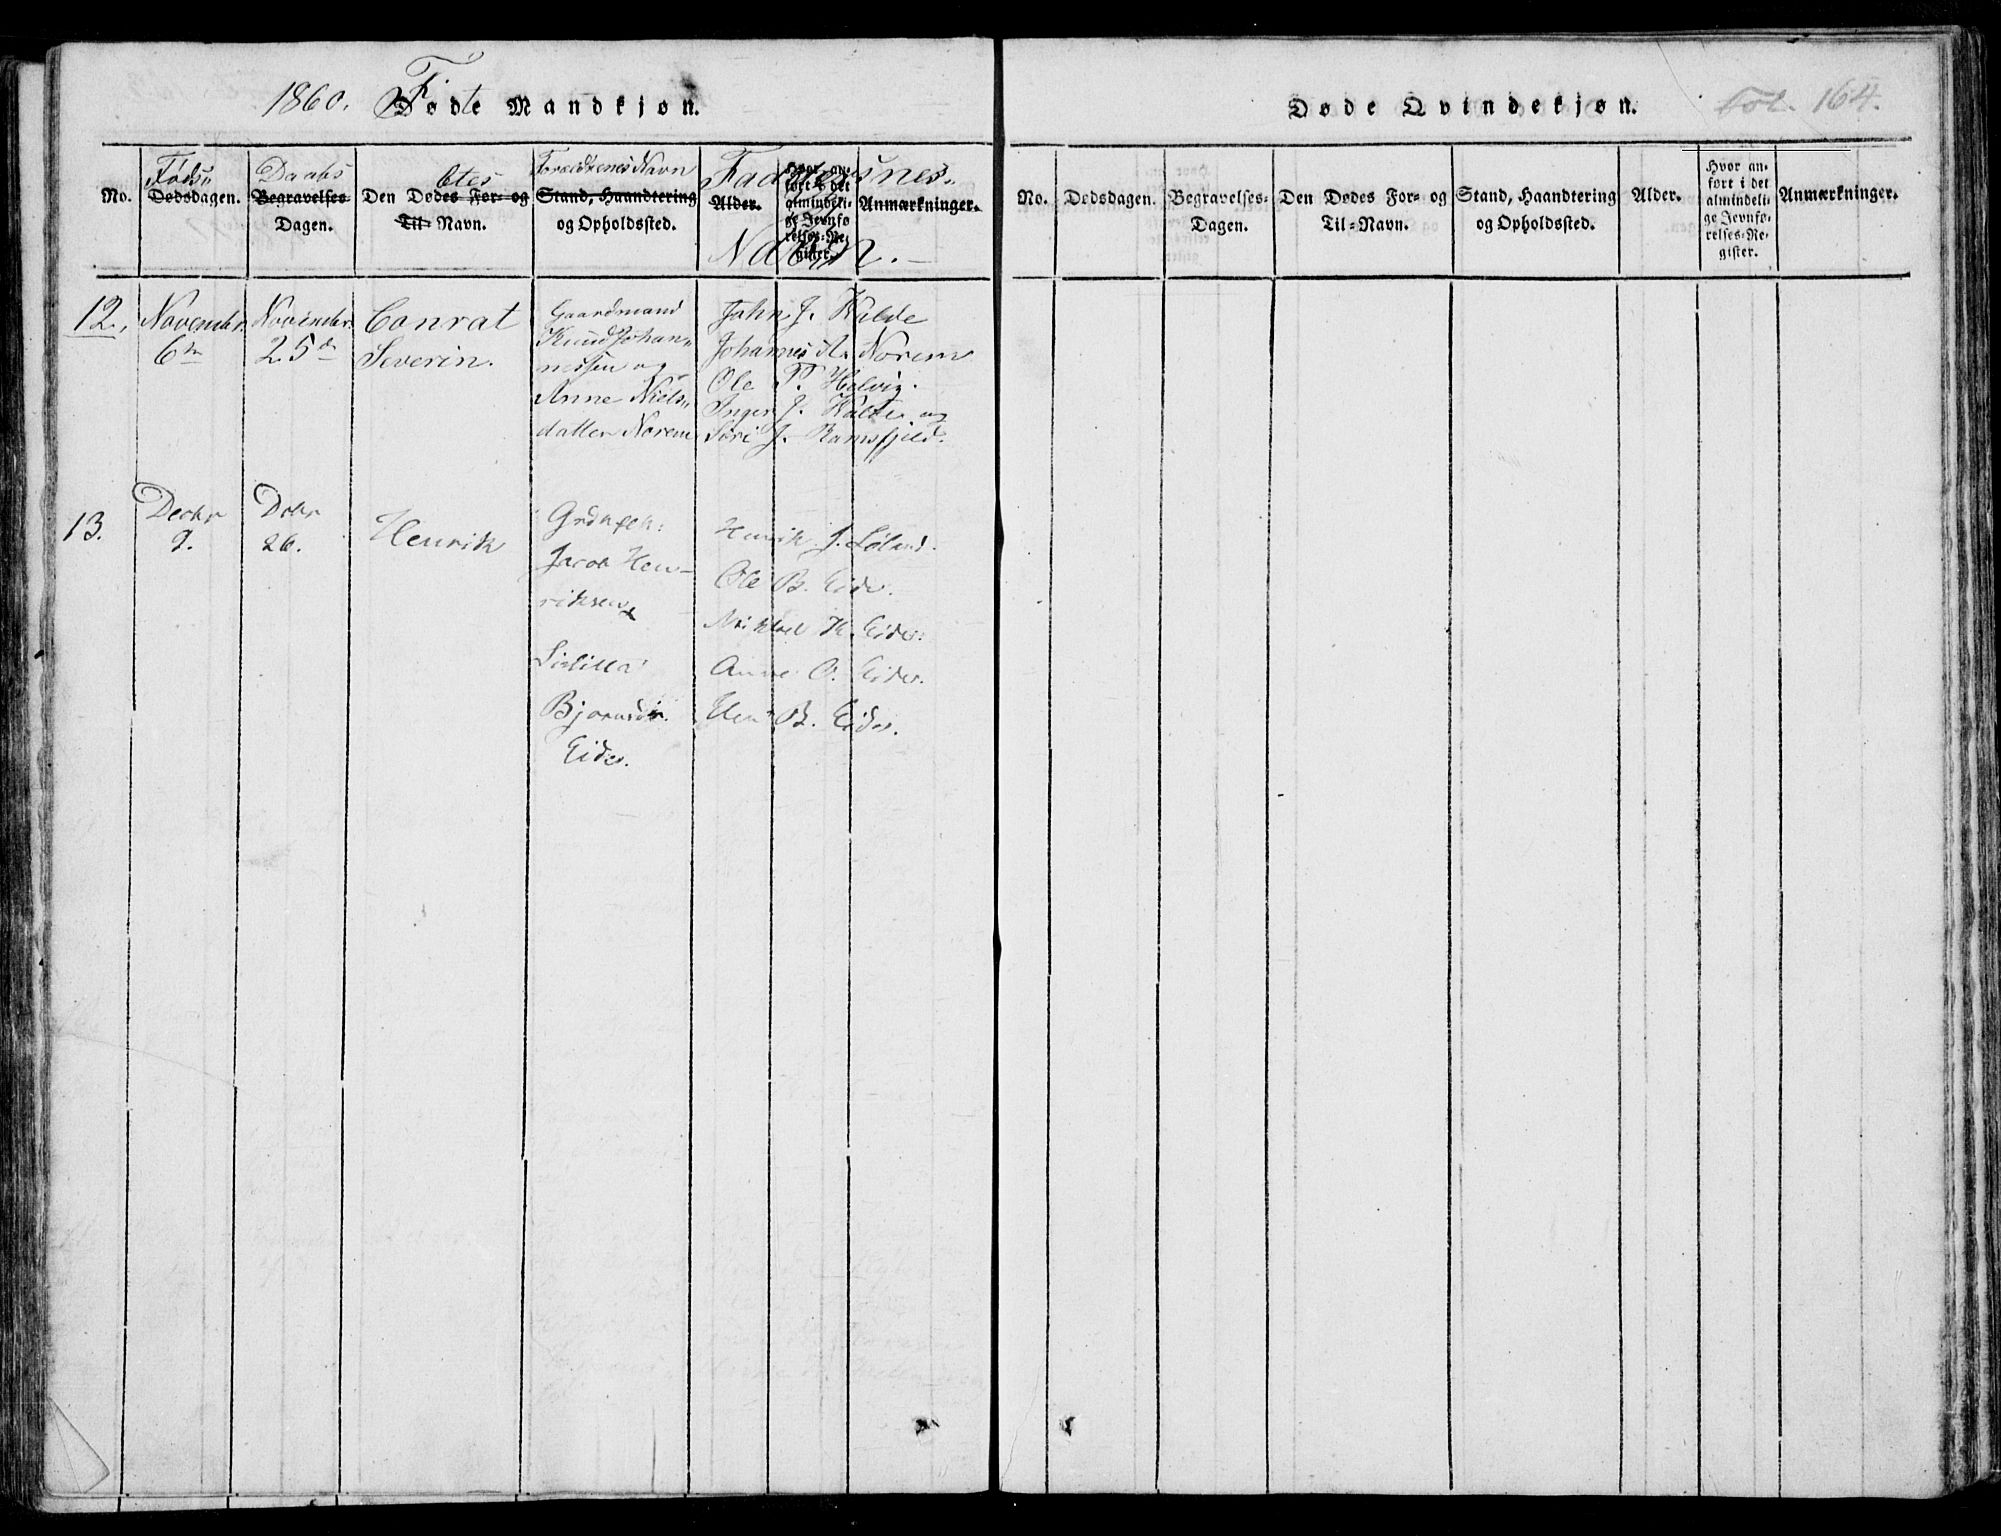 1860. Fødte Mandkjøn.
Døde Qvindekjøn. Fol. 164.
No. Føds Dødsdagen. Daabs Begravelses Dagen. Den Døbtes Dødes For- og Til- Navn. Forældrenes Navn Stand, Haandtering og Opholdssted. Faddernes Navn. Alder. Hvor anført i det almindelige Jevnførelses-Register. Anmærkninger.
No. Dødsdagen. Begravelses-Dagen. Den Dødes For- og Til-Navn. Stand, Haandtering og Opholdssted. Alder. Hvor anført i det almindelige Jevnførelses-Register. Anmærkninger.
12. November November Conrat Gaardmand John J.
6te 25de Severin. Knud Johan- Johannes A. Norem
nessen og Ole P. Helvig.
Anne Niels- Inger J. og
datter Norem Siri J. Ramsfjeld.
13. Decbr Dcbr Henrik
9. 26. Henrik J. Løland.
Jacob Hen- Ole B. Eide.
riksen & K. Eide.
Sissilla Anne O. Eide.
Bjørnsdtr. B. Eide.
Eide.